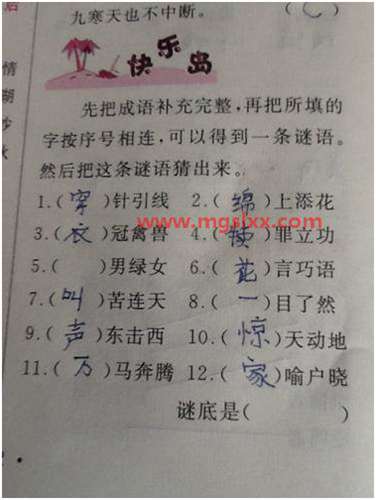 九寒天也不中断。 ( )
快乐岛
情
先把成语补充完整,再把所填的
字按序号相连,可以得到一条谜语。
然后把这条谜语猜出来。
1.(穿)针引线 2.(绵)上添花
www.mgslxx.com
3.(衣)冠禽兽 4.( )罪立功
5.( )男绿女 6.(花)言巧语
7.(叫)苦连天 8.(一)目了然
9.(声)东击西 10.(惊)天动地
11.(万)马奔腾 12.(家)喻户晓
谜底是( )